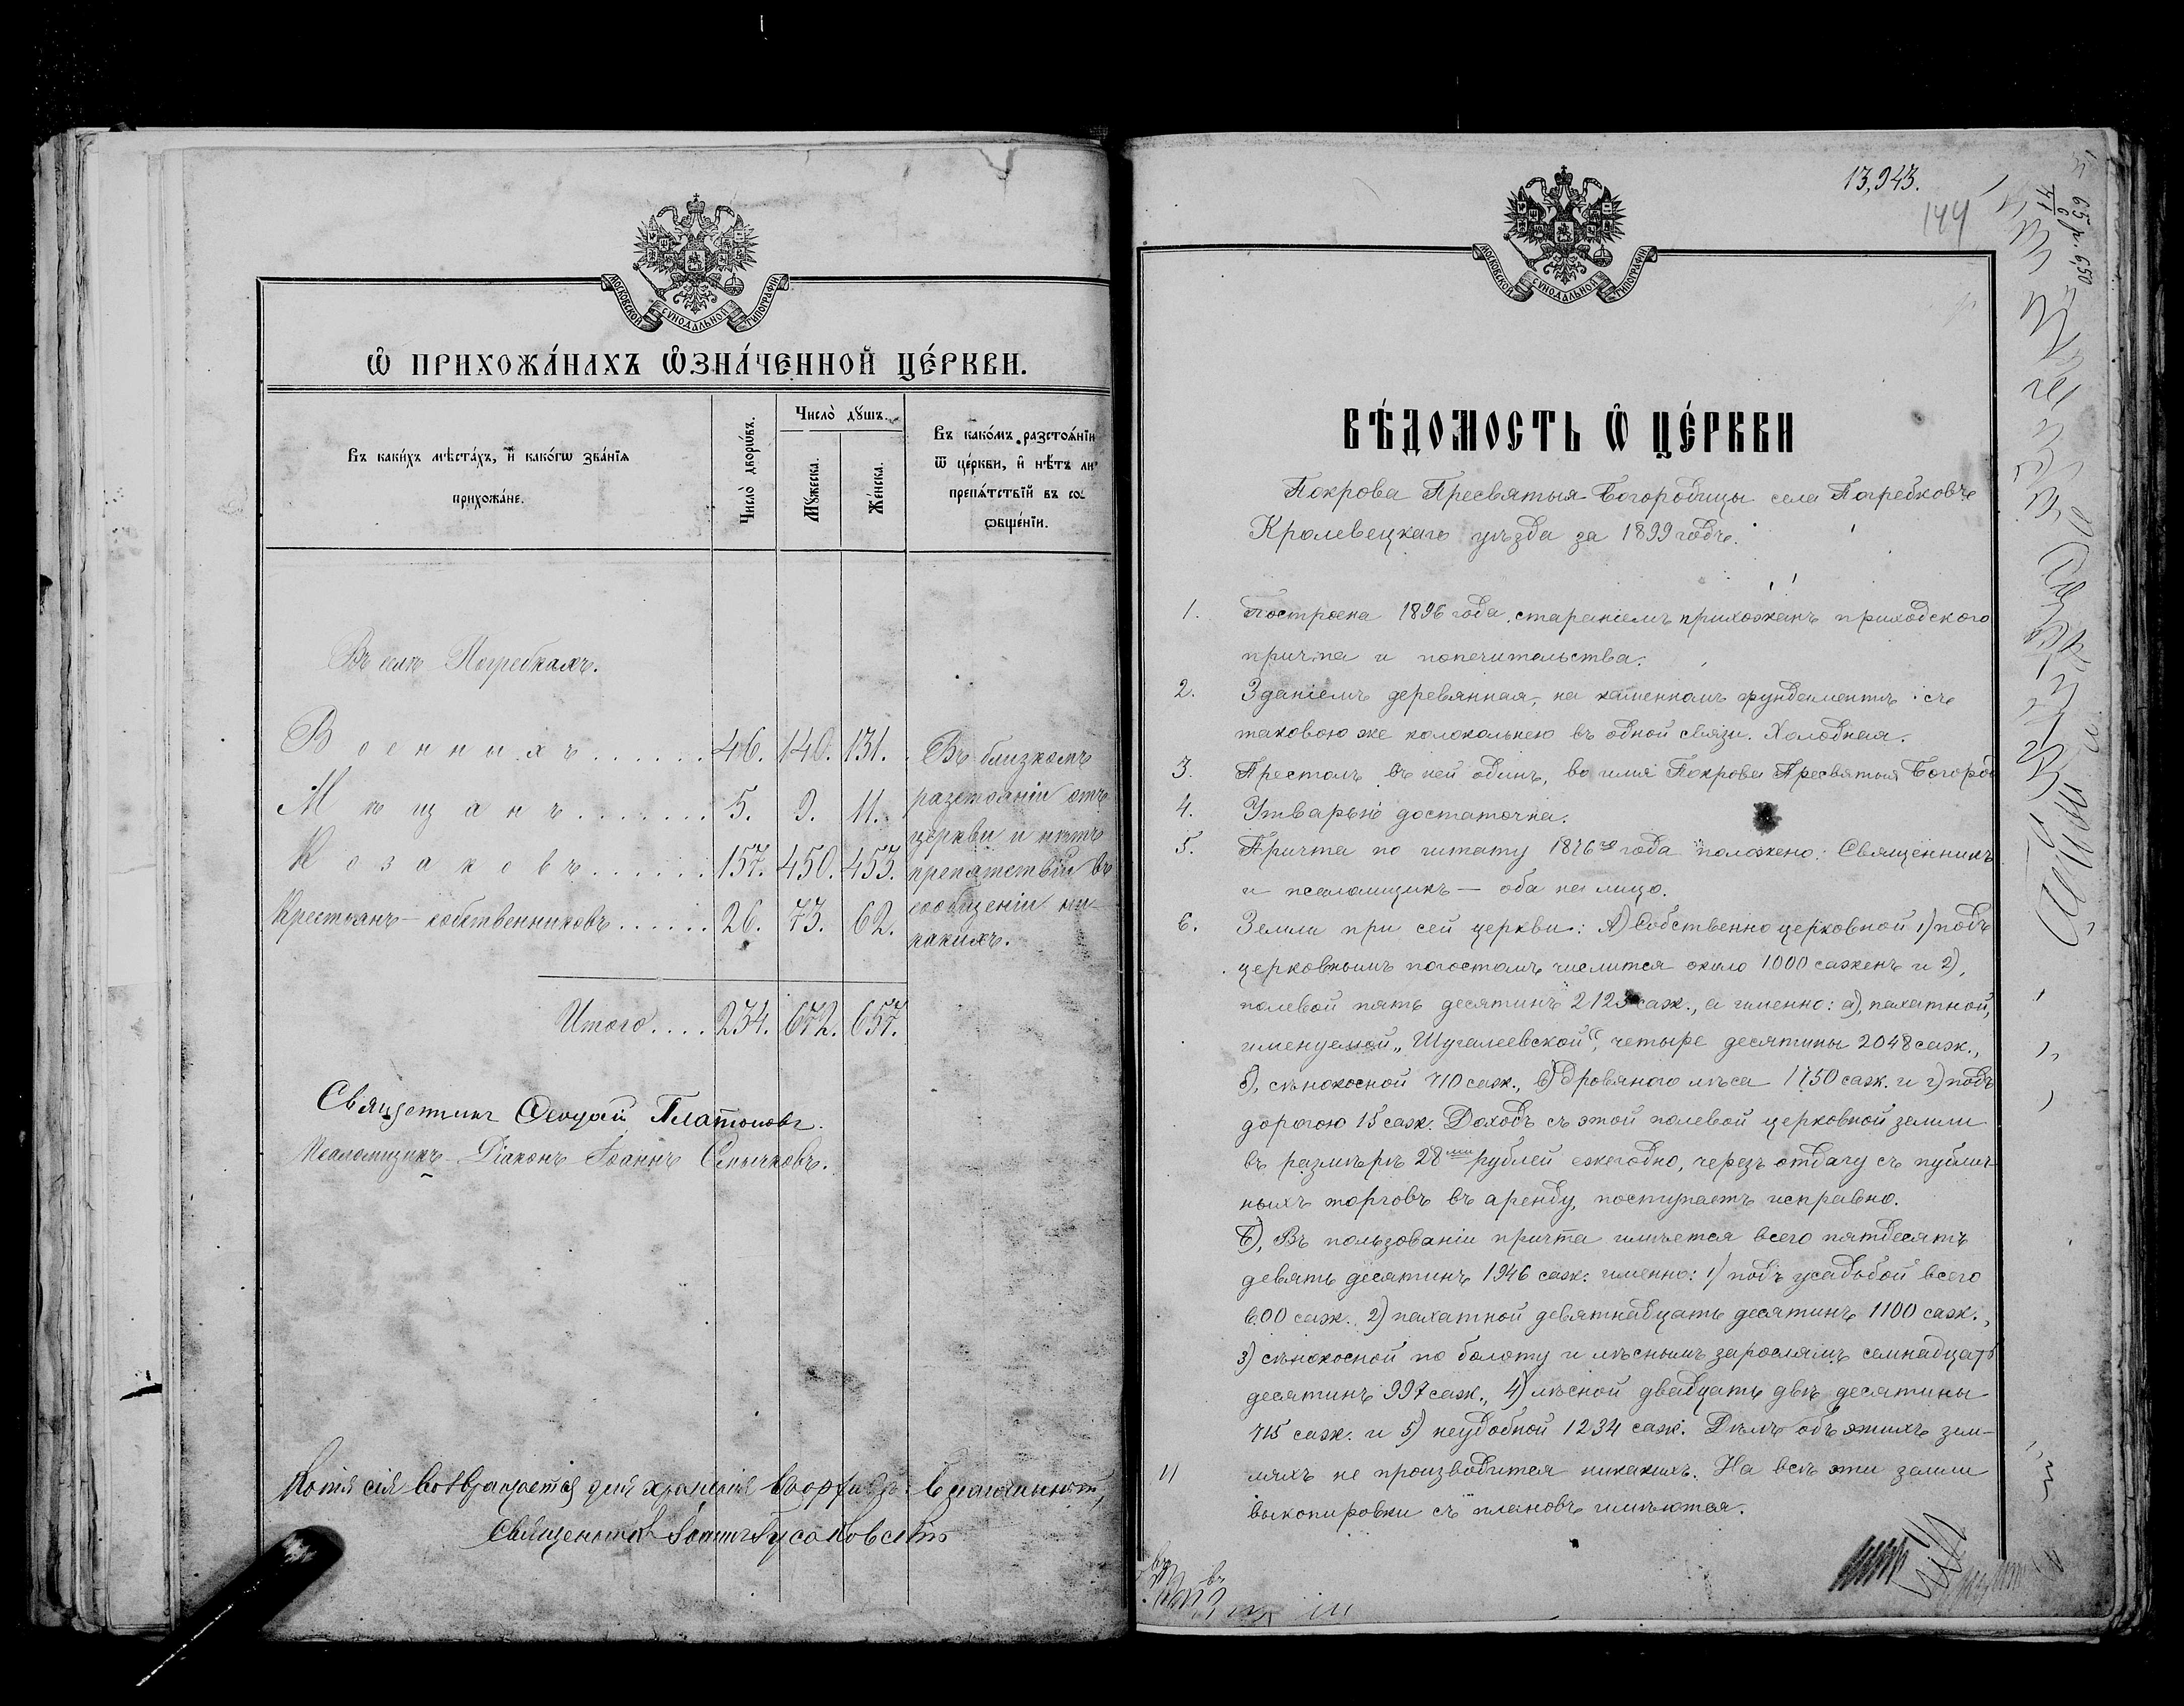 МОСКОВСКОЙ СУНОДАЛЬНОЙ ТИПОГРАФІИ
Ѡ ПРИХОЖА́НАХЪ ѠЗНА́ЧЕННОЙ ЦЕ́РКВИ.
Въ каки́хъ мѣста́хъ, и҆ како́гѡ зва́нїѧ
прихожа́не.
Число̀ дворѡ́въ.
Число̀ дꙋшъ.
Мꙋ́жеска.
Же́нска.
Въ како́мъ разстоѧ́нїи
ѿ це́ркви, и҆ нѣ́тъ ли
препѧ́тствїй въ со-
ѡбще́нїи.
Въ селѣ Погребкахъ.
Военныхъ...... 46. 140. 131.
Мѣщанъ....... 5. 9. 11.
Козаковъ...... 157. 450. 453.
Крестьянъ-собственниковъ...... 26. 73. 62.
Въ близкомъ
разстояніи отъ
церкви и нѣтъ
препятствій въ
сообщеніи ни-
какихъ.
Итого.... 234. 672. 657.
Священникъ Платоновъ.
Псаломщикъ-Діаконъ Іоаннъ
Копія сія возвращается для храненія
Священникъ
13,943.
144
МОСКОВСКОЙ СУНОДАЛЬНОЙ ТИПОГРАФІИ
ВѢ́ДОМОСТЬ Ѡ ЦЕ́РКВИ
Покрова Пресвятыя Богородицы села Погребковъ
Кролевецкаго уѣзда за 1899 годъ.
1. Построена 1896 года, стараніемъ прихожанъ приходского
причта и попечительства.
2. Зданіемъ деревянная, на каменномъ фундаментѣ съ
таковою же колокольнею въ одной связи. Холодная.
3. Престолъ въ ней одинъ, во имя Покрова Пресвятыя Богород
4. Утварью достаточна.
5. Причта по штату 1876го года положено: Священникъ
и псаломщикъ — оба на лицо.
6. Земли при сей церкви: А) Собственно церковной 1) подъ
церковнымъ погостомъ числится около 1000 сажень и 2),
полевой пять десятинъ 2123 саж., а именно: а), пахатной,
именуемой „Шугалеевской“, четыре десятины 2048 саж.,
б), сѣнокосной 710 саж., в) дровяного лѣса 1750 саж. и г) подъ
дорогою 15 саж. Доходъ съ этой полевой церковной земли
въ размѣрѣ 28ми рублей ежегодно, черезъ отдачу съ публич-
ныхъ торговъ въ аренду, поступаетъ исправно.
Б), Въ пользованіи причта имѣется всего пятдесятъ
девять десятинъ 1946 саж. именно: 1) подъ усадьбой всего
600 саж. 2) пахатной девятнадцать десятинъ 1100 саж.,
3) сѣнокосной по болоту и лѣснымъ зарослямъ семнадцать
десятинъ 997 саж., 4) лѣсной двадцать двѣ десятины
715 саж. и 5) неудобной 1234 саж. Дѣлъ объ этихъ зем-
ляхъ не производится никакихъ. На всѣ эти земли
выкопировки съ плановъ имѣются.
11